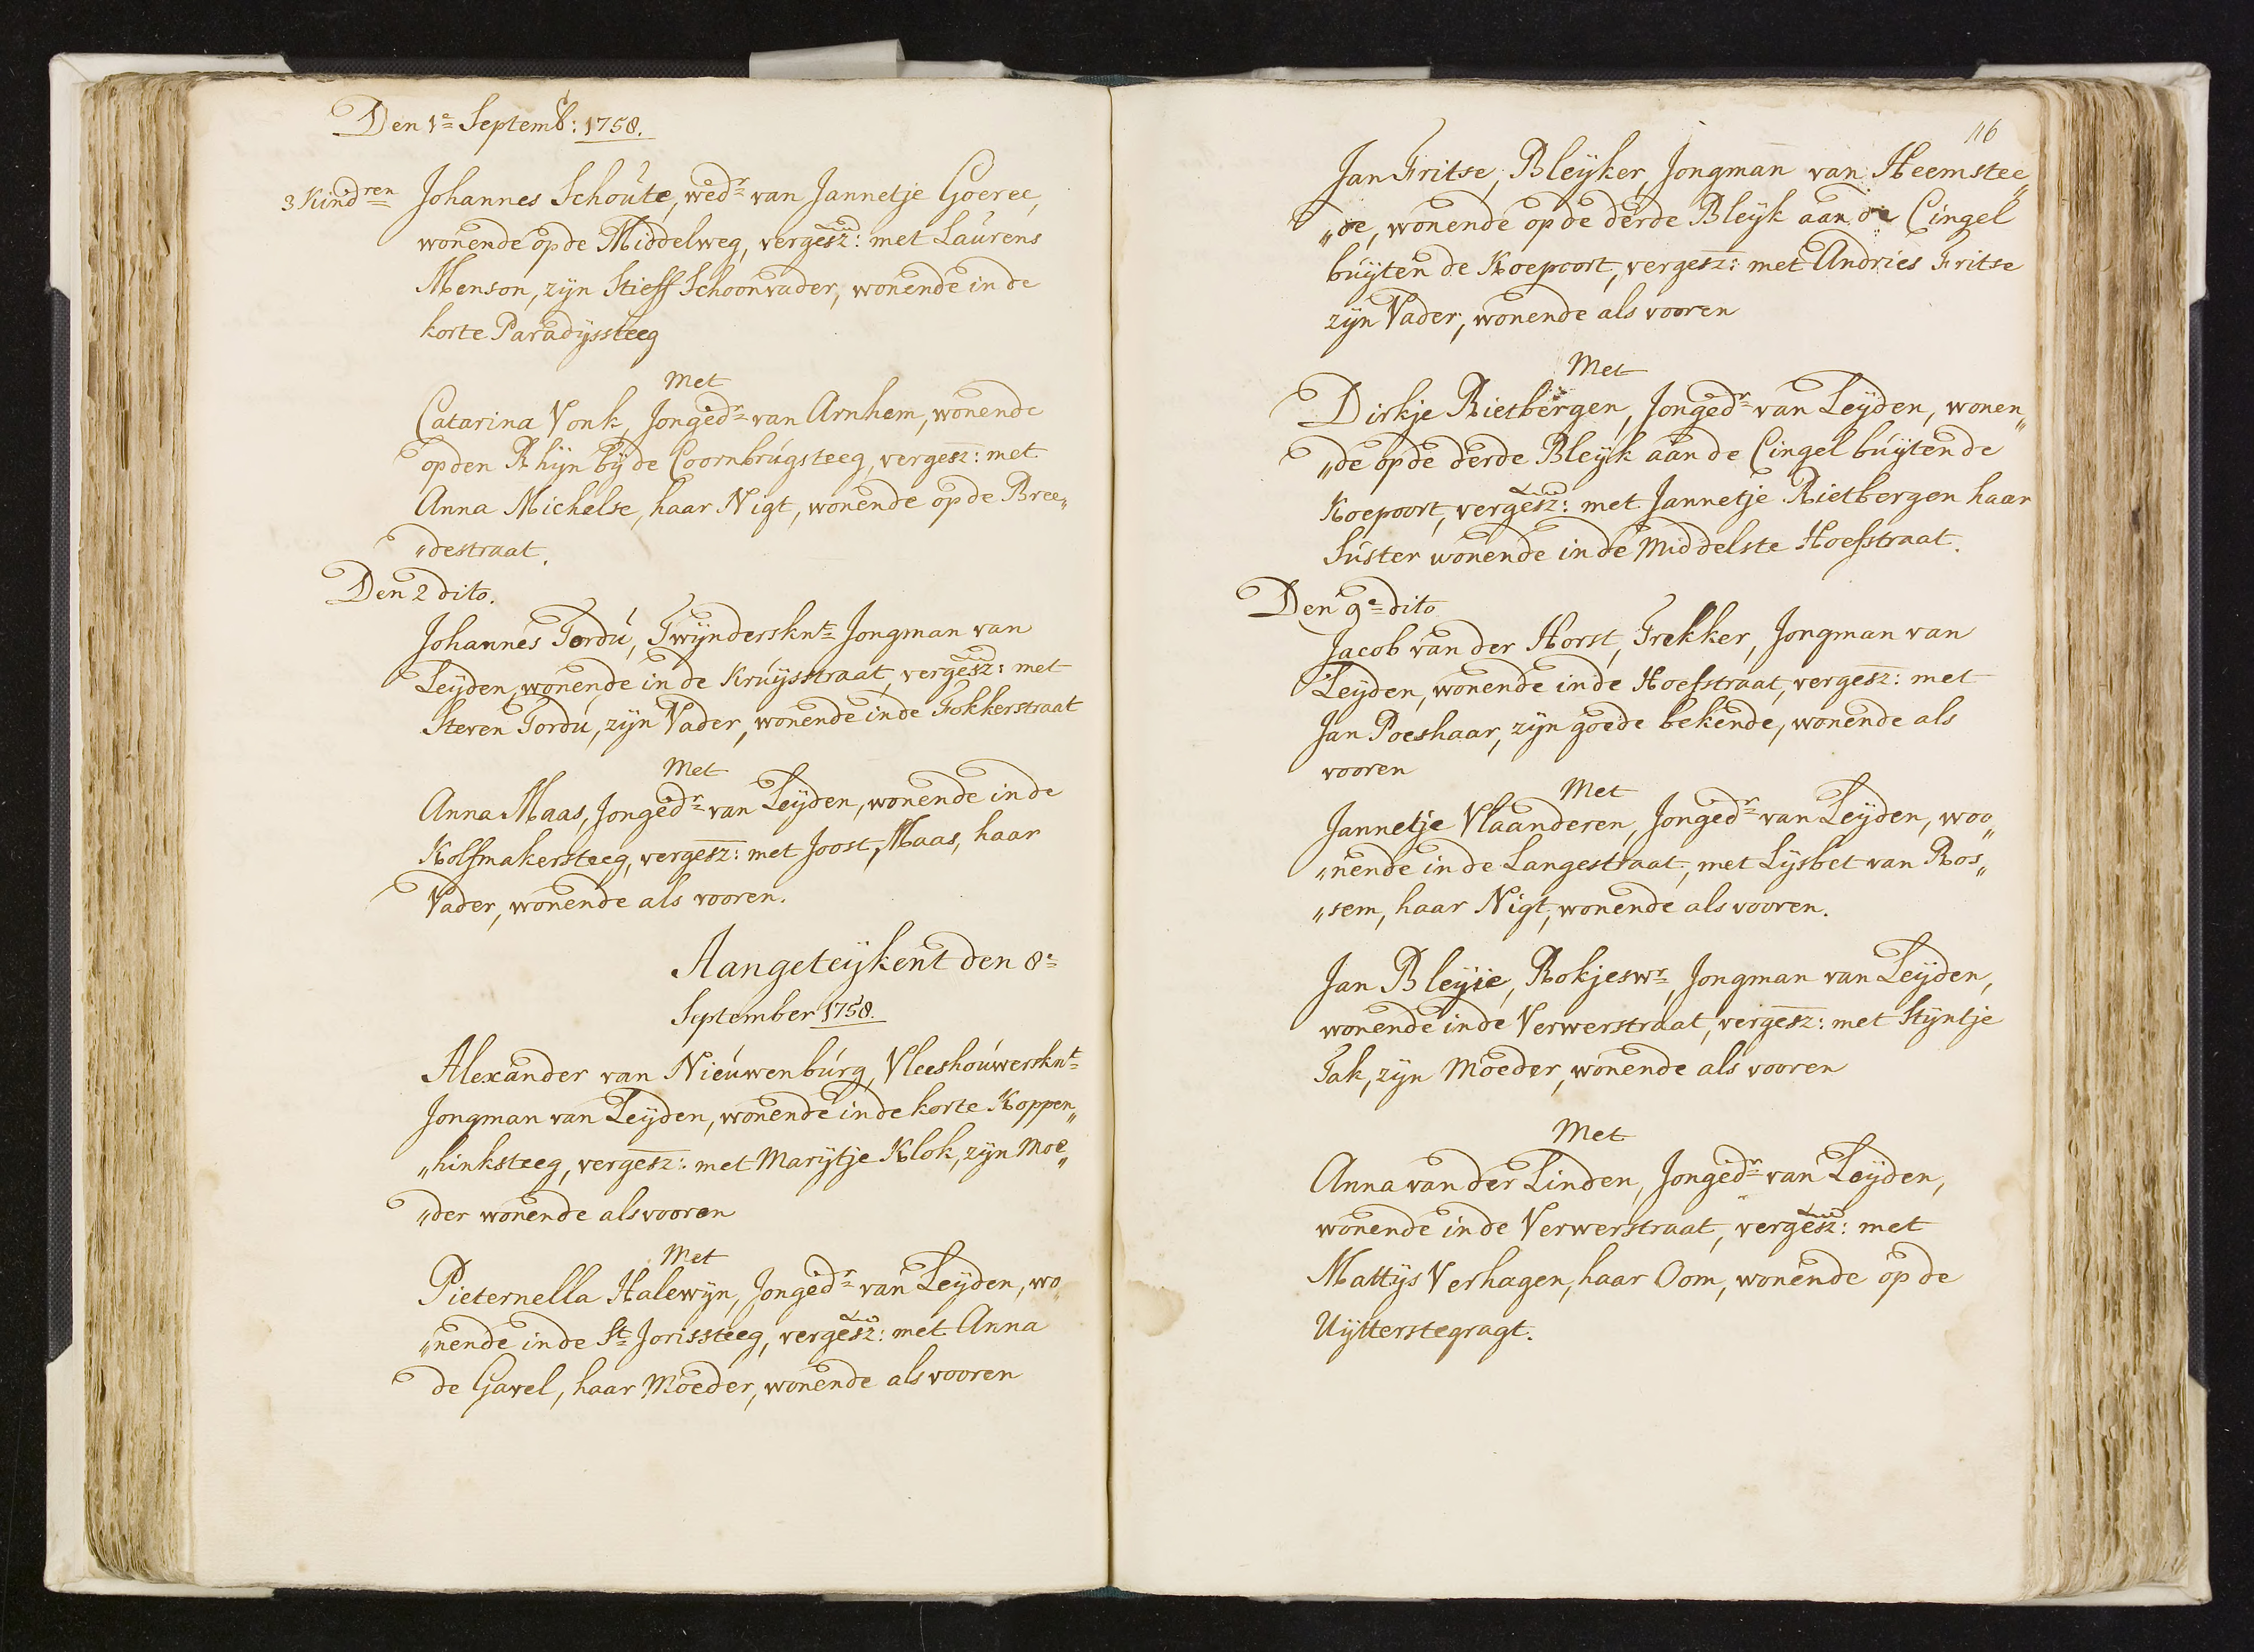 Den 1e Septemb: 1758.
3 Kindren Johannes Schoute, wedr van Jannetje Goeree,
wonende op de Middelweg, vergesz: met Laurens
Menson, zijn Stieff Schoonvader, wonende in de
korte Paradijssteeg
Met
Catarina Vonk, Jongedr van Arnhem, wonende
op den Rhijn bij de Coornbrugsteeg, vergesz: met
Anna Michelse, haar Nigt, wonende op de Bree„
„destraat.
Den 2 dito.
Johannes Tordu, Twijndersknt Jongman van
Leijden, wonende in de Kruijsstraat, vergesz: met
Steven Tordu, zijn Vader, wonende in de Fokkerstraat
Met
Anna Maas, Jongedr van Leijden, wonende in de
Kolfmakersteeg, vergesz: met Joost Maas, haar
Vader, wonende als vooren.
Aangeteijkent den 8e
September 1758.
Alexander van Nieuwenburg, Vleeshouwersknt
Jongman van Leijden, wonende in de korte Koppen„
„hinksteeg, vergesz: met Marijtje Klok, zijn Moe„
„der wonende als vooren
Met
Pieternella Halewijn, Jongedr van Leijden, wo„
„nende in de St Jorissteeg, vergesz: met Anna
de Gavel, haar Moeder, wonende als vooren
116
Jan Fritse, Bleijker, Jongman van Heemstee„
„de, wonende op de derde Bleijk aan de Cingel
buijten de Koepoort, vergesz: met Andries Fritse
zijn Vader, wonende als vooren
Met
Dirkje Rietbergen, Jongedr van Leijden, wonen„
„de op de derde Bleijk aan de Cingel buijten de
Koepoort, vergesz: met Jannetje Rietbergen haar
Suster wonende in de Middelste Hoefstraat.
Den 9e dito
Jacob van der Horst, Trekker, Jongman van
Leijden, wonende in de Hoefstraat, vergesz: met
Jan Poeshaar, zijn goede bekende, wonende als
vooren
Met
Jannetje Vlaanderen, Jongedr van Leijden, woo„
„nende in de Langestraat, met Lijsbet van Ros„
„sem, haar Nigt, wonende als vooren.
Jan Bleijie, Rokjeswr, Jongman van Leijden,
wonende in de Verwerstraat, vergesz: met Stijntje
Tak, zijn Moeder, wonende als vooren
Met
Anna van der Linden, Jongedr van Leijden,
wonende in de Verwerstraat, vergesz: met
Mattijs Verhagen, haar Oom, wonende op de
Uijtterstegragt.